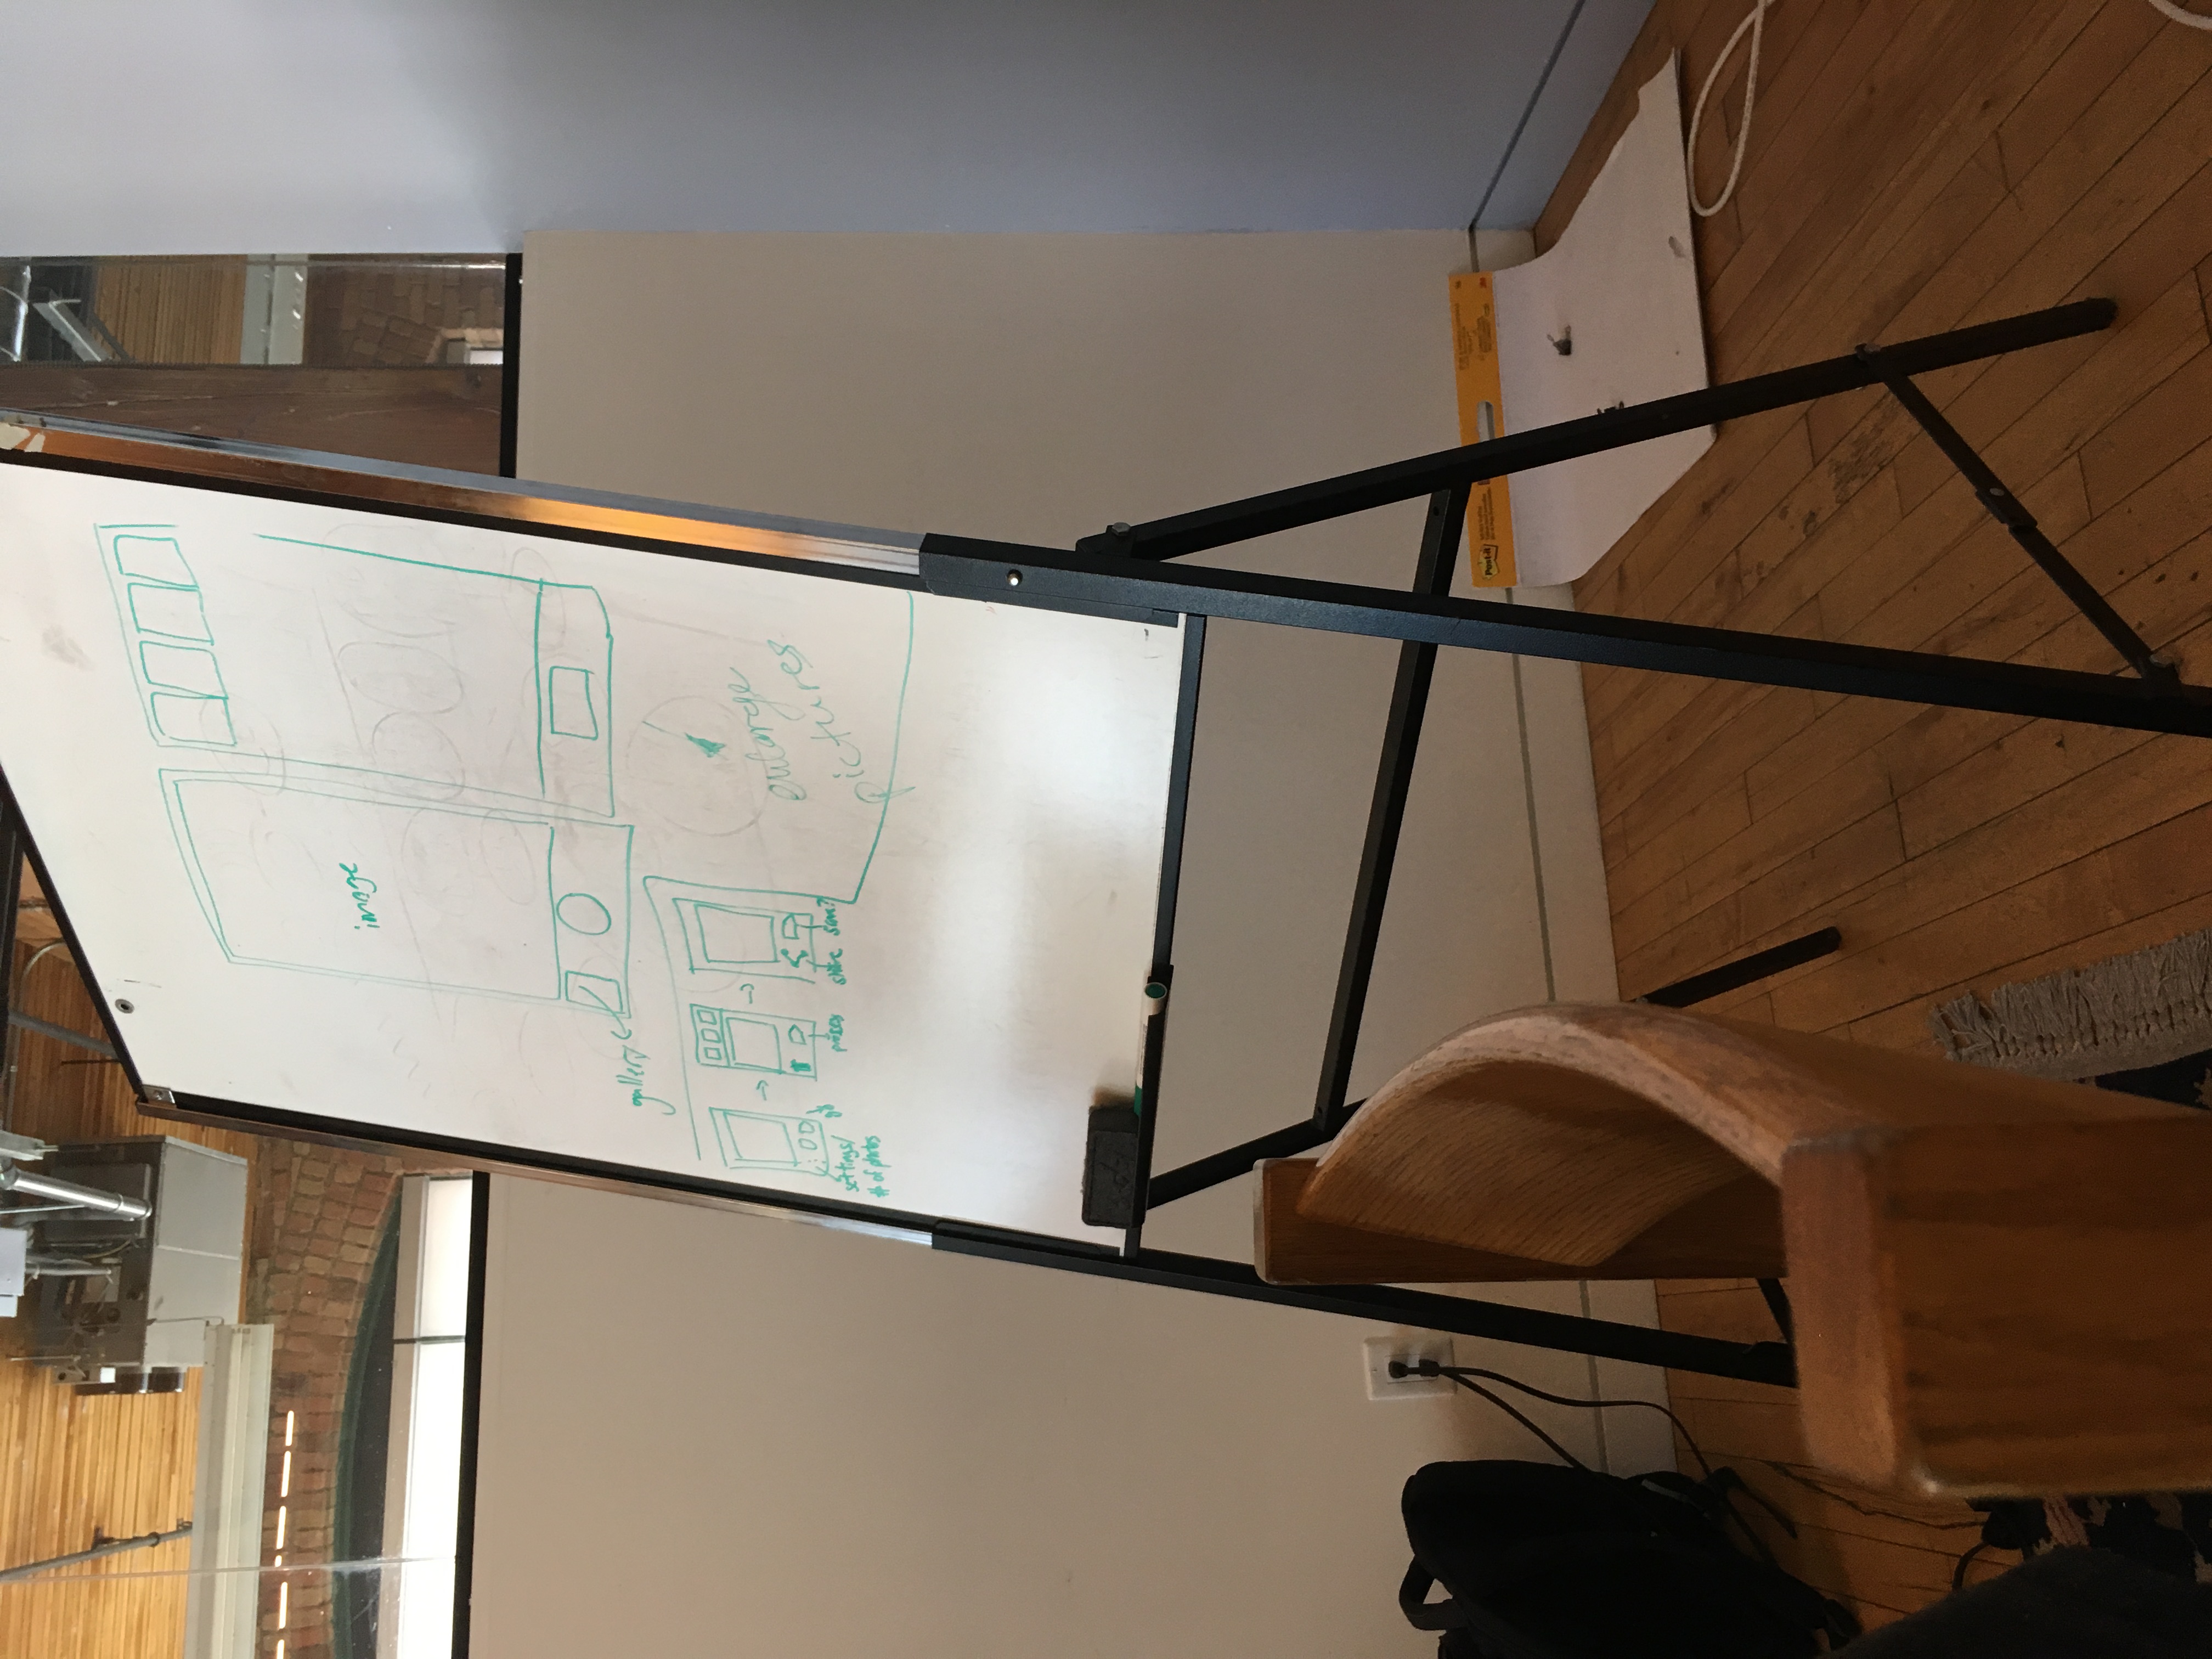 image
gallery
settings/
# of photos
go
process
share
save?
enlarge
pictures
Post-it